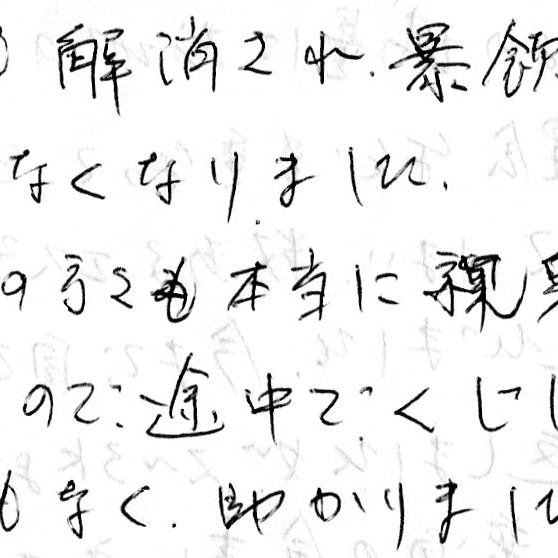 解消され、暴飲
なくなりました。
のうえも本当に親身
ので、途中でくじけ
もなく、助かりました